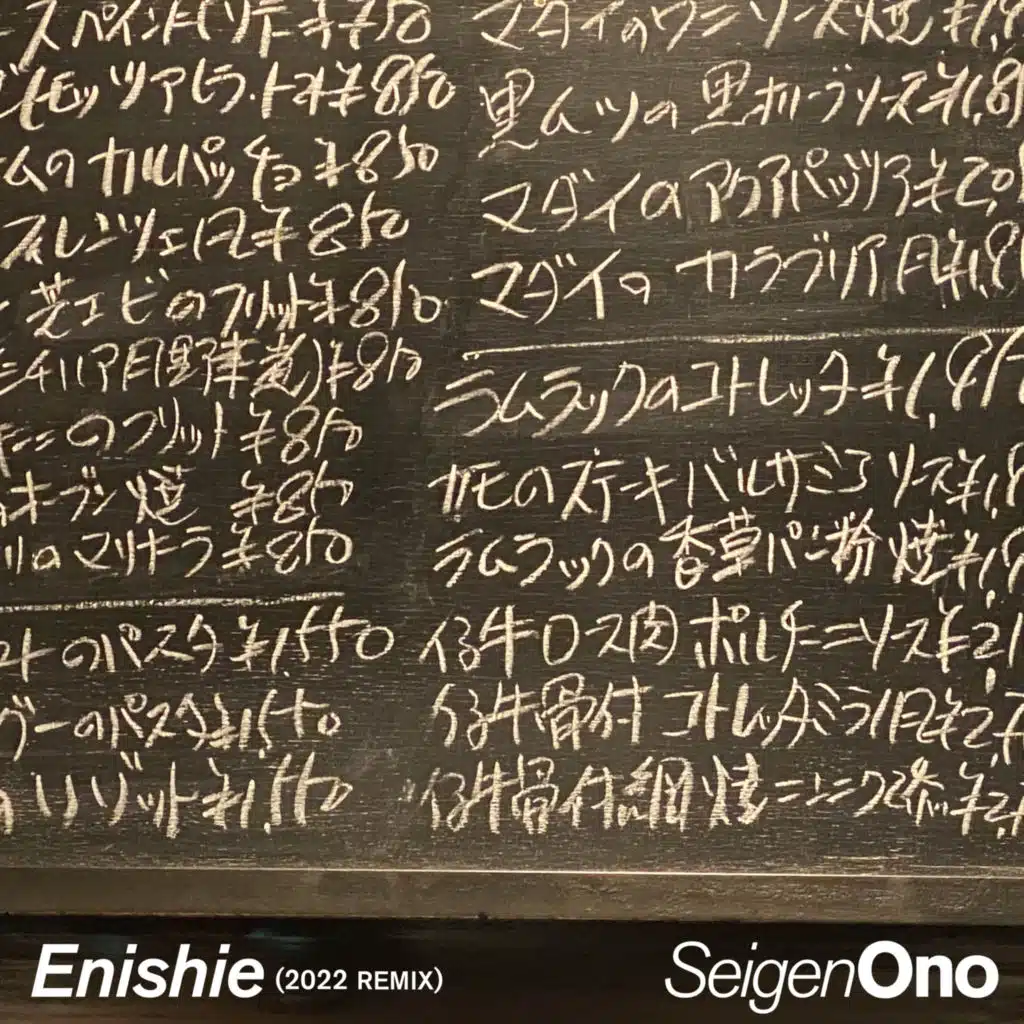 ¥750
モッツァレラ.トマト¥850
ムの カルパッチョ ¥850
フィレンツェ風¥850
芝エビのフリット¥810
シチリア風野菜煮)¥810
のフリット ¥810
オーブン焼 ¥810
のマリナーラ ¥810
のパスタ ¥1,550
グーのパスタ¥1,550
リゾット¥1,550
マダイのウニソース焼¥1,
黒ムツの黒オリーブソース¥1,8
マダイのアクアパッツァ¥2,0
マダイの カラブリア風¥1,8
ラムラックのコトレッタ¥1,
カモのステーキ バルサミコソース¥1,
ラムラックの香草パン粉焼¥1,
仔牛ロース肉ポルチーニソース¥2,1
仔牛骨付コトレッタミラノ風¥2,
仔牛骨付網焼ニンニク添¥2,
Enishie (2022 REMIX)
SeigenOno